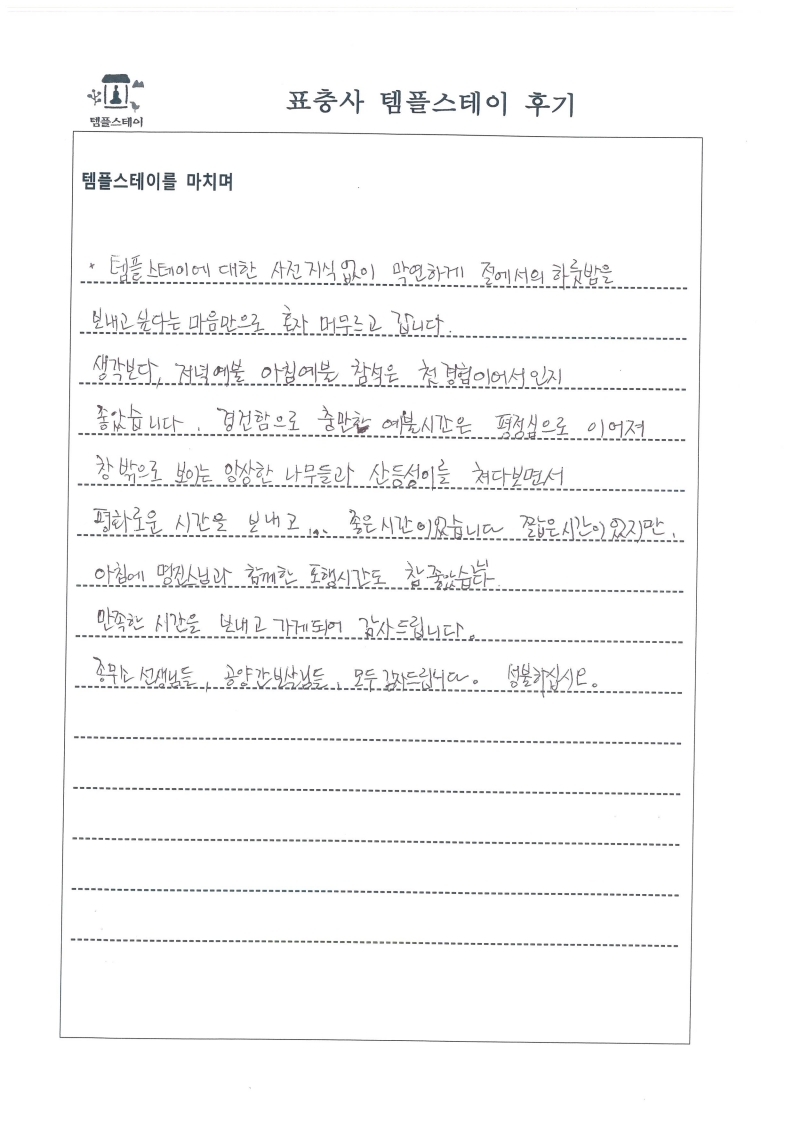 템플스테이
표충사 템플스테이 후기
템플스테이를 마치며
· 템플스테이에 대한 사전지식없이 막연하게 절에서의 하룻밤을
보내고 싶다는 마음만으로 혼자 머무르고 갑니다.
생각보다, 저녁예불 아침예불 참석은 첫경험이어서인지
좋았습니다. 경건함으로 충만한 예불시간은 평정심으로 이어져
창밖으로 보이는 앙상한 나무들과 산등성이를 쳐다보면서
평화로운 시간을 보내고... 좋은시간이었습니다 짧은시간이었지만,
아침에 명진스님과 함께한 포행시간도 참 좋았습니다.
만족한 시간을 보내고 가게되어 감사드립니다.
종무소 선생님들, 공양간보살님들, 모두 감사드립니다. 성불하십시오.